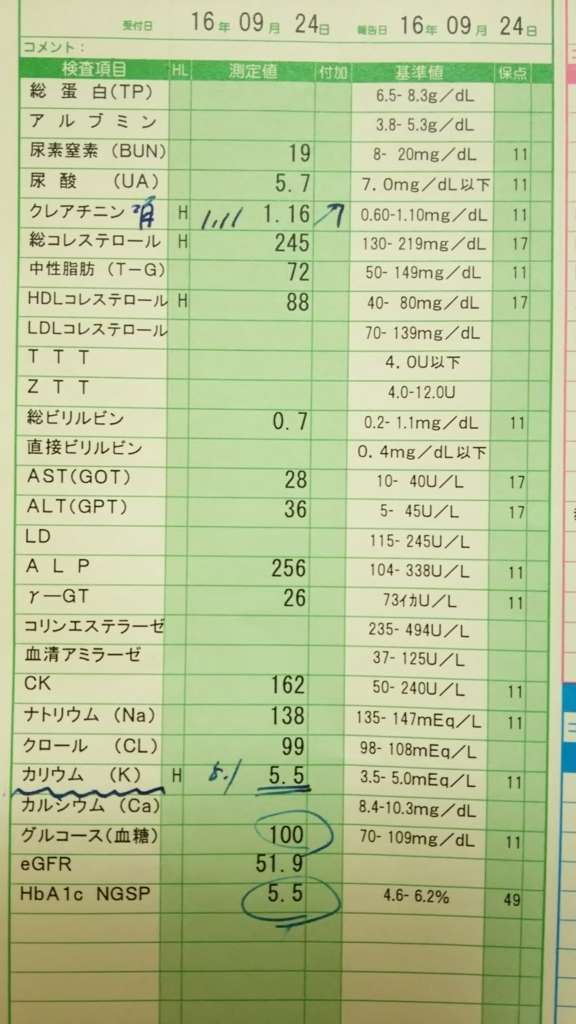 受付日 16年 09月 24日 報告日 16年 09月 24日
コメント：
検査項目 HL 測定値 付加 基準値 保点
総蛋白(TP) 6.5- 8.3g／dL
アルブミン 3.8- 5.3g／dL
尿素窒素(BUN) 19 8- 20mg／dL 11
尿酸 (UA) 5.7 7.0mg／dL以下 11
クレアチニン H 1.11 1.16 ↗ 0.60-1.10mg／dL 11
総コレステロール H 245 130- 219mg／dL 17
中性脂肪 (T－G) 72 50- 149mg／dL 11
HDLコレステロール H 88 40- 80mg／dL 17
LDLコレステロール 70- 139mg／dL
TTT 4.0U以下
ZTT 4.0-12.0U
総ビリルビン 0.7 0.2- 1.1mg／dL 11
直接ビリルビン 0.4mg／dL以下
AST(GOT) 28 10- 40U／L 17
ALT(GPT) 36 5- 45U／L 17
LD 115- 245U／L
ALP 256 104- 338U／L 11
γ－GT 26 73イカU／L 11
コリンエステラーゼ 235- 494U／L
血清アミラーゼ 37- 125U／L
CK 162 50- 240U／L 11
ナトリウム (Na) 138 135- 147mEq／L 11
クロール (CL) 99 98- 108mEq／L
カリウム (K) H 5.1 5.5 3.5- 5.0mEq／L 11
カルシウム (Ca) 8.4-10.3mg／dL
グルコース(血糖) 100 70- 109mg／dL 11
eGFR 51.9
HbA1c NGSP 5.5 4.6- 6.2% 49